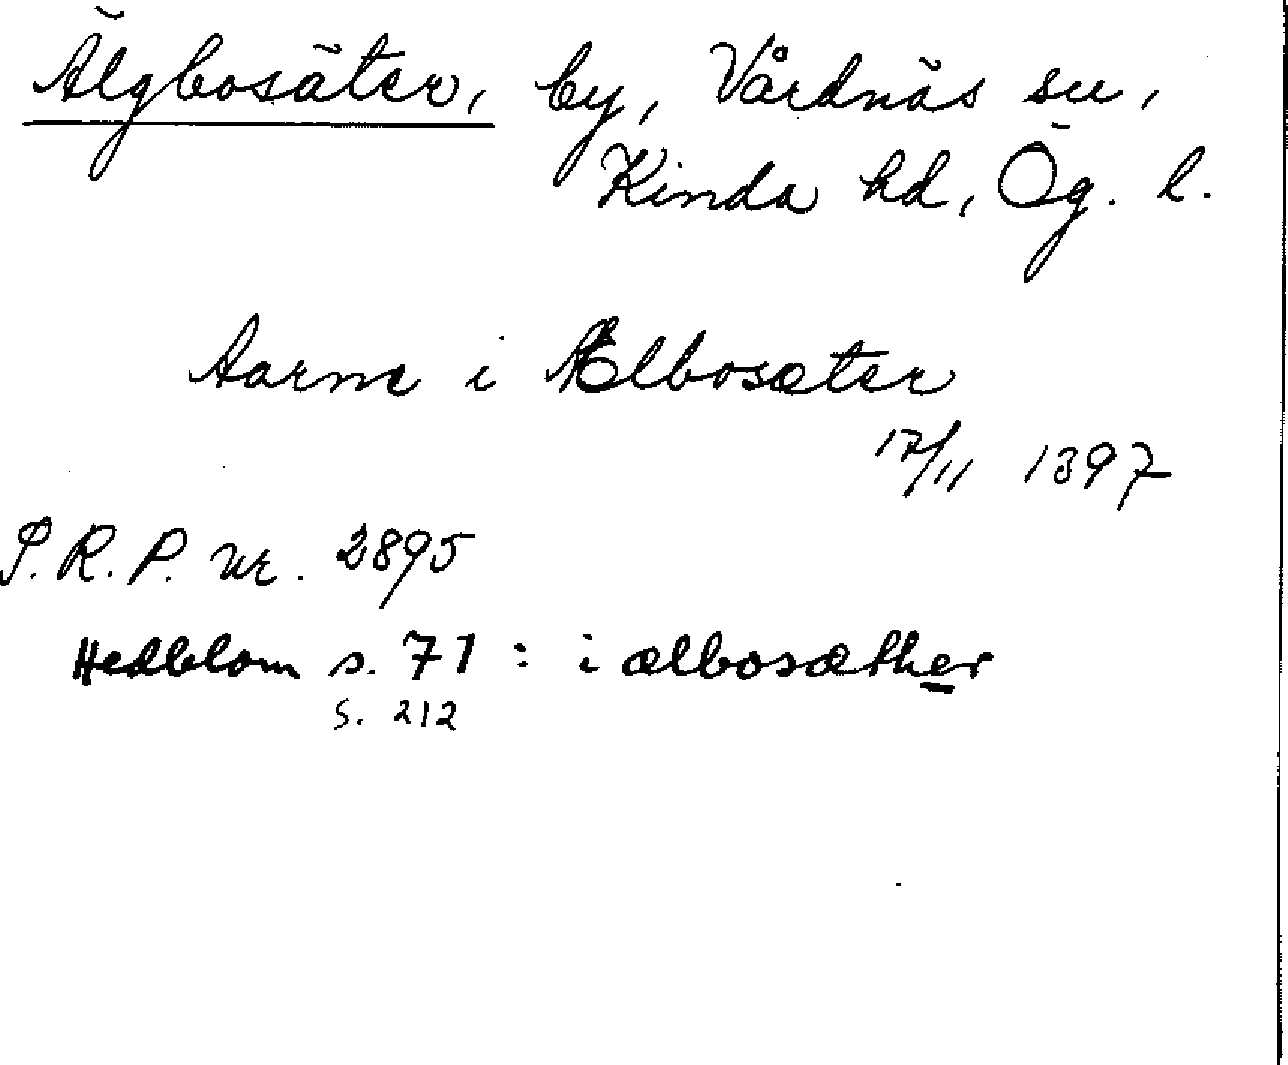 Älgbosäter, by, Vårdnäs sn,
Kinda hd, Ög. l.
Aarne i Ælbosæter
17/11 1397
S.R.P. nr. 2895
Hedblom s. 71 : i ælbosæther
s. 212